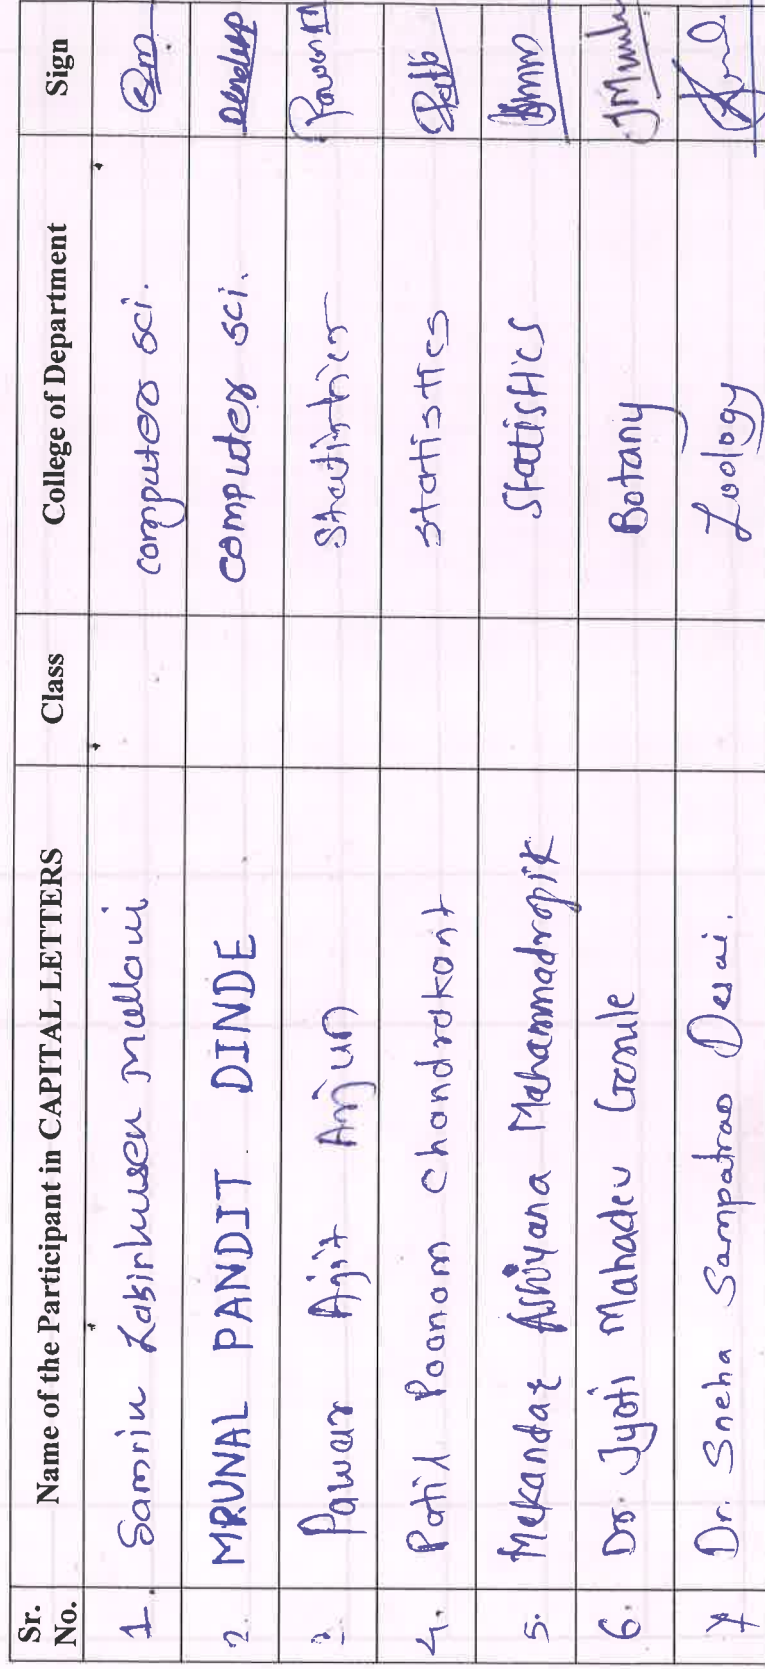 Sr. No. Name of the Participant in CAPITAL LETTERS Class College of Department Sign
1. Samrin Zakirhusen Mullani computer sci.
2. MRUNAL PANDIT DINDE computer sci.
3. Pawar Ajit Arjun Statistics Pawar
4. Patil Poonam Chandrakant statistics Patil
5. Mekandar Ashiyana Mahammadrafik Statistics
6. Dr. Jyoti Mahadev Botany
7 Dr. Sneha Sampatrao Desai. Zoology